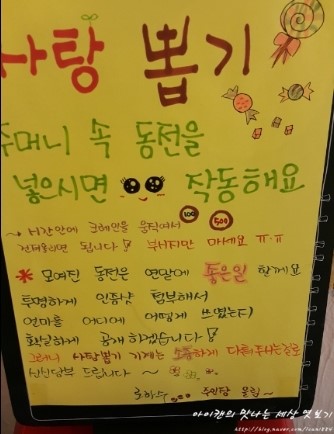 사탕 뽑기
주머니 속 동전을
넣으시면 작동해요
100 500
시간안에 크레인을 움직여서
건져올리면 됩니다! 부서지만 마세요 ㅠ.ㅠ
* 모여진 동전은 연말에 좋은일 할께요
투명하게 인증샷 첨부해서
얼마를 어디에 어떻게 쓰였는지
확실하게 공개하겠습니다!
그러니 사탕뽑기 기계는 소중하게 다뤄주시는걸로
신신당부 드립니다 ~
주인장 올림~
아이캔의 맛나는 세상 엿보기